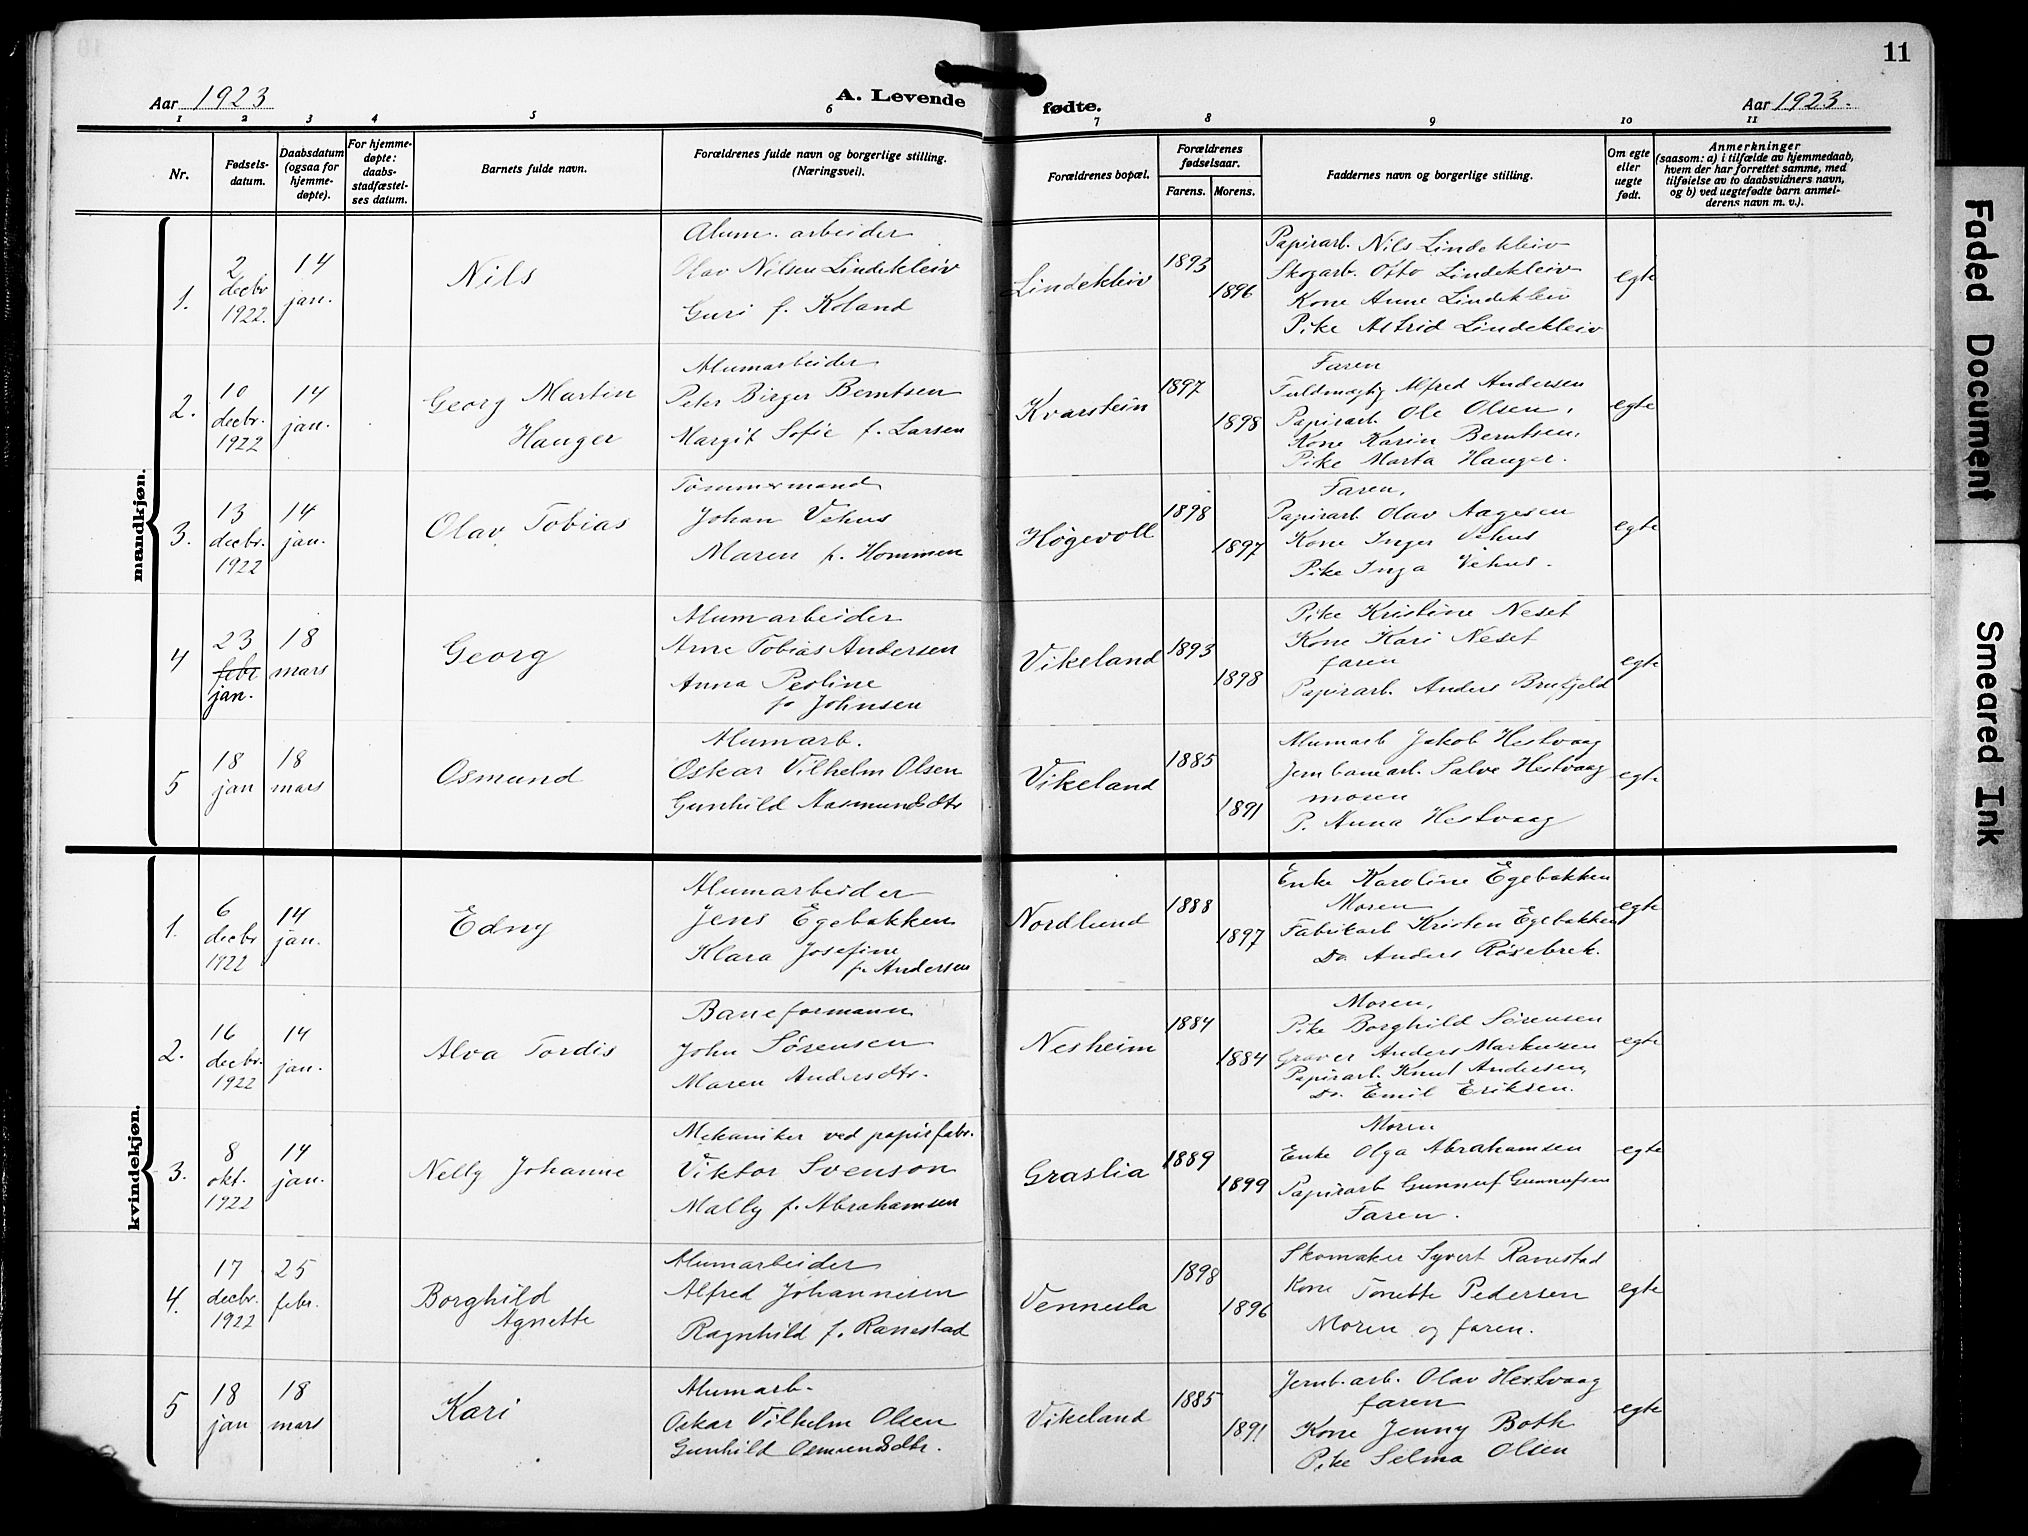 11
Aar 1923
A. Levende
fødte.
Aar 1923.
1 2 3 4 5 6 7 8 9 10 11
Nr.
Fødsels-
datum.
Daabsdatum
(ogsaa for
hjemme-
døpte).
For hjemme-
døpte:
daabs-
stadfæstel-
ses datum.
Barnets fulde navn.
Forældrenes fulde navn og borgerlige stilling.
(Næringsvei).
Forældrenes bopæl.
Forældrenes
fødselsaar.
Farens. Morens.
Faddernes navn og borgerlige stilling.
Om egte
eller
uegte
født.
Anmerkninger
(saasom: a) i tilfælde av hjemmedaab,
hvem der har forrettet samme, med
tilføielse av to daabsvidners navn,
og b) ved uegtefødte barn anmel-
derens navn m. v.).
mandkjøn.
1.
2
decbr
1922.
14
jan.
Nils
Alum. arbeider
Olav Nilsen Lindekleiv
Guri f. Koland
Lindekleiv
1893
1896
Papirarb. Nils Lindekleiv
Skogarb. Otto Lindekleiv
Kone Anne Lindekleiv
Pike Astrid Lindekleiv
egte
2.
10
decbr.
1922
14
jan.
Georg Martin
Hauger
Alumarbeider
Peter Birger Berntsen
Margit Sofie f. Larsen
Kvarstein
1897
1898
Faren
Fuldmægtig Alfred Andersen
Papirarb. Ole Olsen,
Kone Karin Berntsen,
Pike Marta Hauger.
egte
3.
13
decbr.
1922
14
jan.
Olav Tobias
Tømmermand
Johan Vehus
Maren f. Hommen
Høgevoll
1898
1897
Faren,
Papirarb. Olav Aagesen
Kone Inger Vehus
Pike Inga Vehus.
egte
4
23
febr
jan.
18
mars
Georg
Alumarbeider
Arne Tobias Andersen
Anna Perline
f. Johnsen
Vikeland
1893
1898
Pike Kristine Neset
Kone Kari Neset
faren
Papirarb. Anders
egte
5
18
jan
18
mars
Osmund
Alumarb.
Oskar Vilhelm Olsen
Gunhild Aasmundsdtr
Vikeland
1885
1891
Alumarb Jakob Hestvaag
Jernbanearb. Salve Hestvaag
moren
P. Anna Hestvaag
egte
kvindekjøn.
1.
6
decbr
1922
14
jan.
Edny
Alumarbeider
Jens Egebakken
Klara Josefine
f. Andersen
Nordlund
1888
1897
Enke Karoline Egebakken
Moren
Fabrikarb Kristen Egebakken
Do. Anders Rosebrek.
egte
2.
16
decbr.
1922
14
jan.
Alva Tordis
Baneformann
John Sørensen
Maren Andersdtr.
Nesheim
1884
1884
Moren,
Pike Borghild Sørensen
Graver Anders Markussen
Papirarb. Knut Andersen,
Do. Emil Eriksen.
egte
3.
8
okt.
1922
14
jan.
Nelly Johanne
Mekaniker ved papirfabr.
Viktor Svenson
Mally f. Abrahamsen
Graslia
1889
1899
Moren
Enke Olga Abrahamsen
Papirarb Gunnuf Gunnufsen
Faren.
egte
4.
17
decbr.
1922
25
febr.
Borghild
Agnette
Alumarbeider
Alfred Johannesen
Ragnhild f. Ranestad
Vennesla
1898
1896
Skomaker Syvert Ranestad
Kone Tonette Pedersen
Moren og faren.
egte
5
18
jan
18
mars
Kari
Alumarb.
Oskar Vilhelm Olsen
Gunhild Osmundsdtr.
Vikeland
1885
1891
Jernb.arb. Olav Hestvaag
faren
Kone Jenny Both
Pike Selma Olsen
egte
Faded Document
Smeared Ink